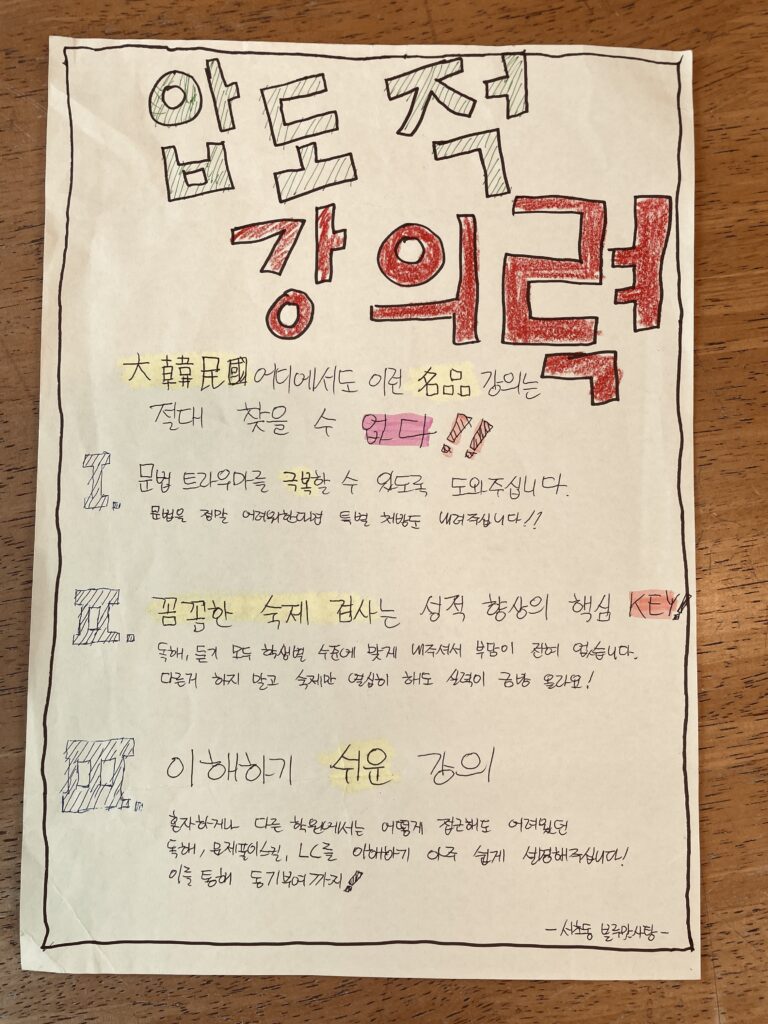 압도적
강의력
大韓民國 어디에서도 이런 名品 강의는
절대 찾을 수 없다!!
I. 문법 트라우마를 극복할 수 있도록 도와주십니다.
문법을 정말 어려워한다면 특별 처방도 내려주십니다!!
II. 꼼꼼한 숙제 검사는 성적 향상의 핵심 KEY!
독해, 듣기 모두 학생별 수준에 맞게 내주셔서 부담이 전혀 없습니다.
다른거 하지 말고 숙제만 열심히 해도 실력이 금방 올라요!
III. 이해하기 쉬운 강의
혼자하거나 다른 학원에서는 어떻게 접근해도 어려웠던
독해, 문제풀이스킬, LC를 이해하기 아주 쉽게 설명해주십니다!
이를 통해 동기부여까지!
- 서초동 블루맛사탕 -